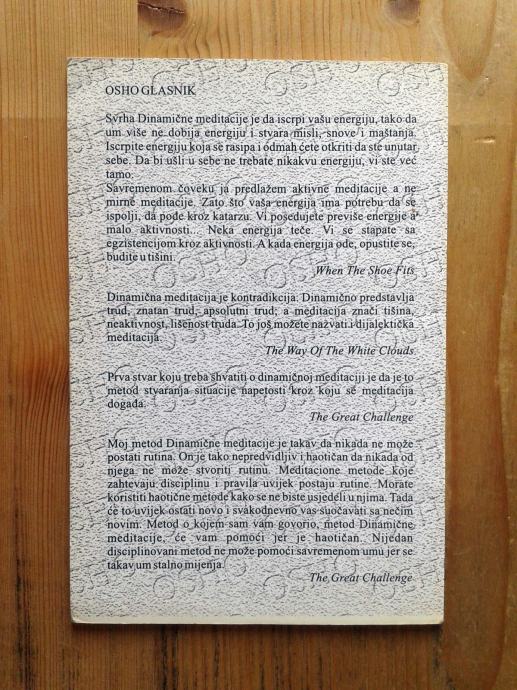 OSHO GLASNIK
Svrha Dinamične meditacije je da iscrpi vašu energiju, tako da
um više ne dobija energiju i stvara misli, snove i maštanja.
Iscrpite energiju koja se rasipa i odmah ćete otkriti da ste unutar
sebe. Da bi ušli u sebe ne trebate nikakvu energiju, vi ste već
tamo.
Savremenom čoveku ja predlažem aktivne meditacije a ne
mirne meditacije. Zato što vaša energija ima potrebu da se
ispolji, da pođe kroz katarzu. Vi posedujete previše energije a
malo aktivnosti... Neka energija teče. Vi se stapate sa
egzistencijom kroz aktivnosti. A kada energija ode, opustite se,
budite u tišini.
When The Shoe Fits
Dinamična meditacija je kontradikcija. Dinamično predstavlja
trud, znatan trud, apsolutni trud; a meditacija znači tišina,
neaktivnost, lišenost truda. To još možete nazvati i dijalektička
meditacija.
The Way Of The White Clouds
Prva stvar koju treba shvatiti o dinamičnoj meditaciji je da je to
metod stvaranja situacije napetosti kroz koju se meditacija
događa.
The Great Challenge
Moj metod Dinamične meditacije je takav da nikada ne može
postati rutina. On je tako nepredvidljiv i haotičan da nikada od
njega ne može stvoriti rutinu. Meditacione metode koje
zahtevaju disciplinu i pravila uvijek postaju rutine. Morate
koristiti haotične metode kako se ne biste usjedeli u njima. Tada
će to uvijek ostati novo i svakodnevno vas suočavati sa nečim
novim. Metod o kojem sam vam govorio, metod Dinamične
meditacije, će vam pomoći jer je haotičan. Nijedan
disciplinovani metod ne može pomoći savremenom umu jer se
takav um stalno mijenja.
The Great Challenge